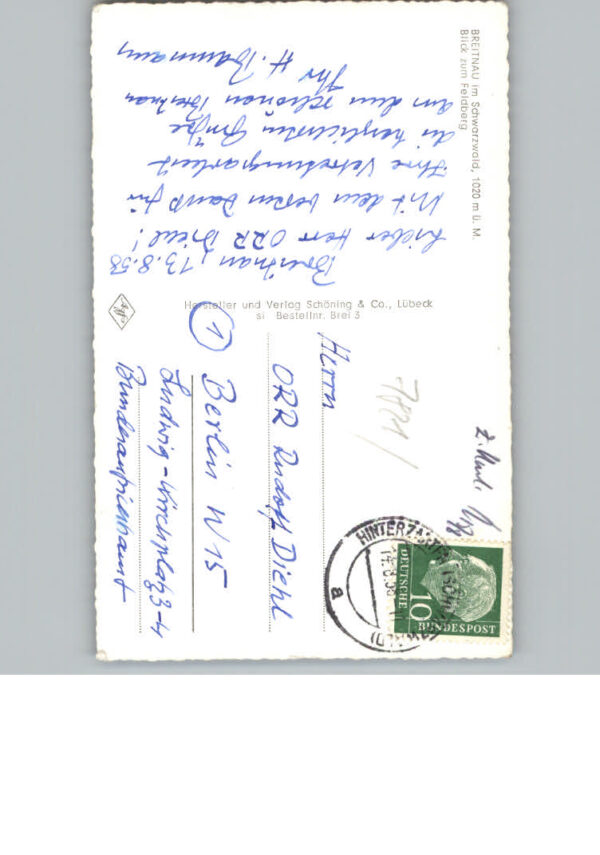 BREITNAU im Schwarzwald, 1020 m ü. M.
Blick zum Feldberg
Breitnau, 13.8.58
Lieber Herr ORR Diehl!
Mit dem besten Dank für
Ihre Vertretungsarbeit
die herzlichsten Grüße
aus dem schönen Breitnau
Ihr H. Baumann
Hersteller und Verlag Schöning & Co., Lübeck
si Bestellnr. Brei 3
Agfa
Herrn
ORR Rudolf Diehl
1
Berlin W 15
Ludwig-Kirchplatz 3-4
Bundesaufsichtsamt
DEUTSCHE
BUNDESPOST
10
HINTERZARTEN
a